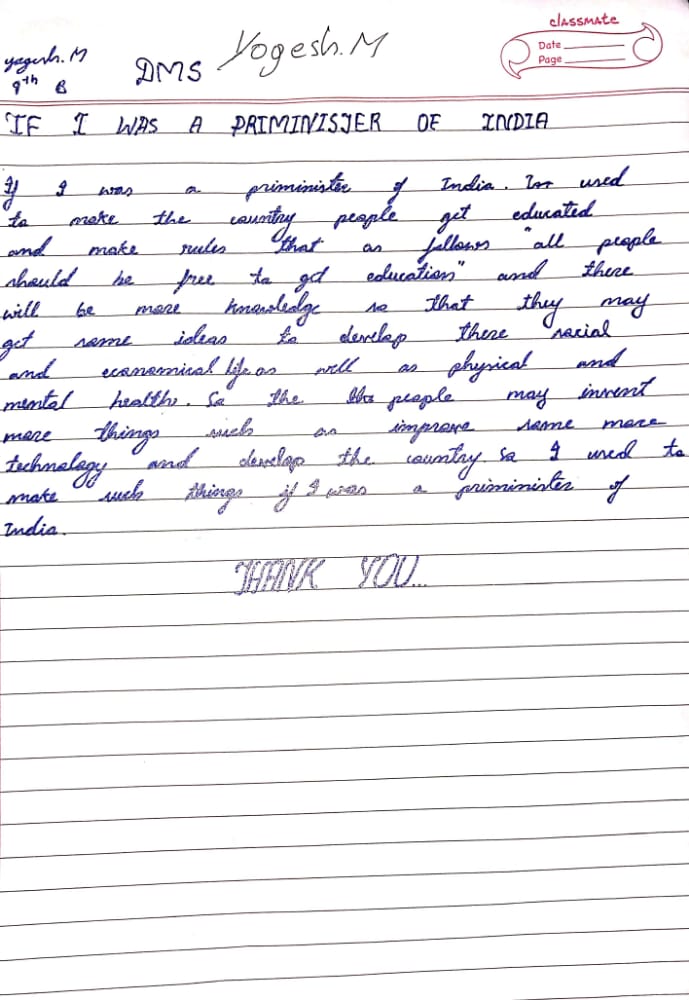 classmate
Date
Page
yogesh. M
9th B
DMS
Yogesh. M
IF I WAS A PRIMINISTER OF INDIA
If I was a priminister of India. I used
to make the country people get educated
and make rules that as follows "all people
should be free to get education" and there
will be more knowledge so that they may
get some ideas to develop there social
and economical life as well as physical and
mental health. So the people may invent
more things such as improve some more
technology and develop the country. So I used to
make such things if I was a priminister of
India.
THANK YOU...